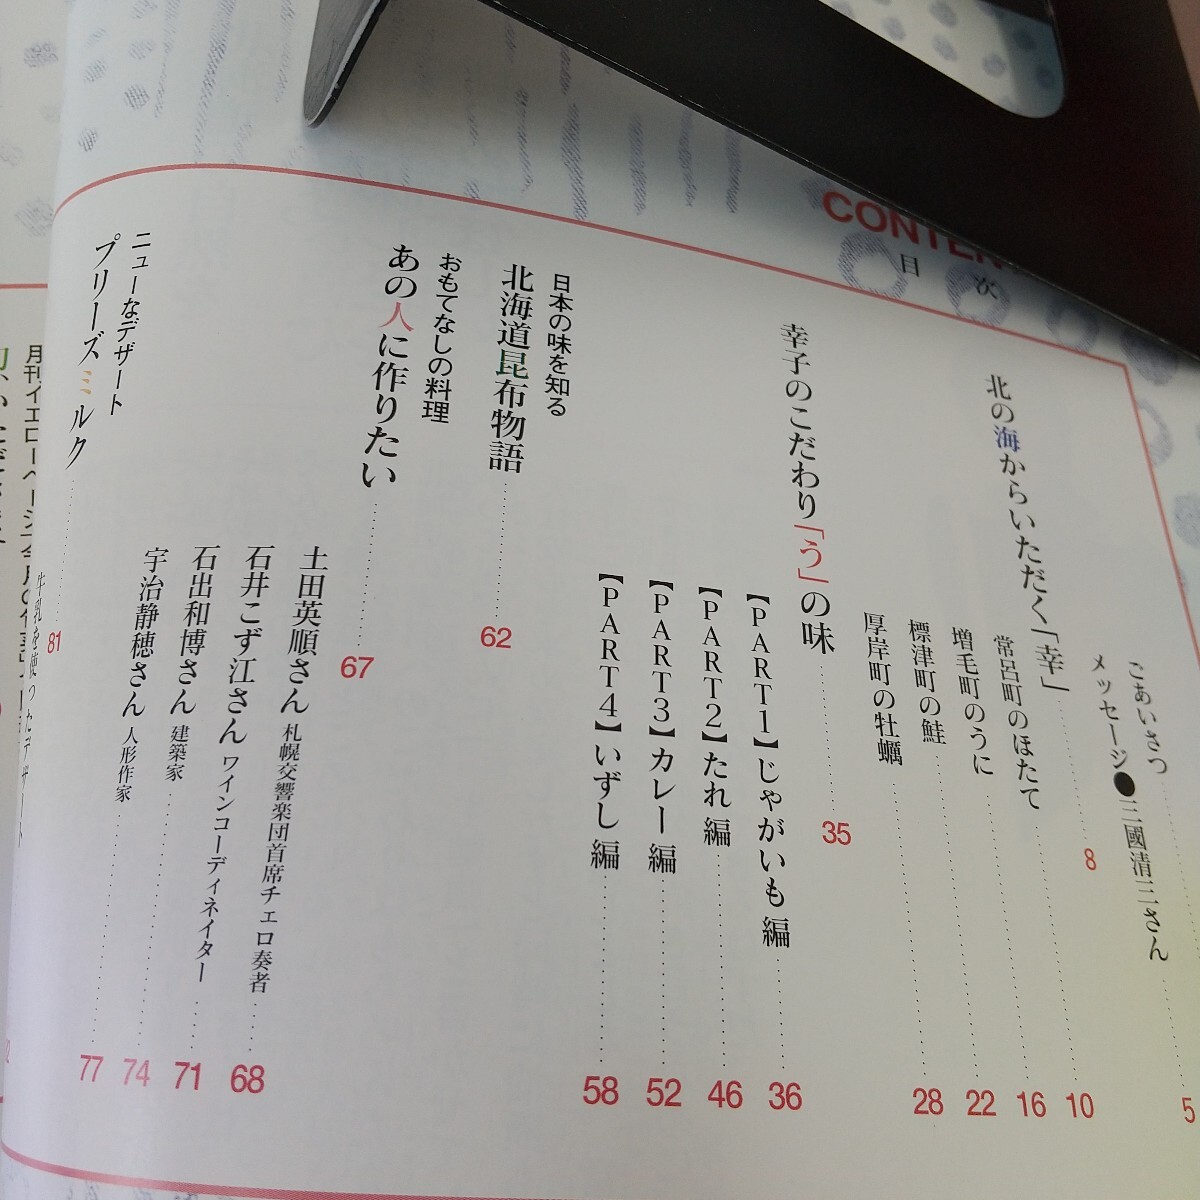 CONTEN
目次
ごあいさつ
メッセージ●三國清三さん 5
北の海からいただく「幸」 8
常呂町のほたて 10
増毛町のうに 16
標津町の鮭 22
厚岸町の牡蠣 28
幸子のこだわり「う」の味 35
【PART1】じゃがいも編 36
【PART2】たれ編 46
【PART3】カレー編 52
【PART4】いずし編 58
日本の味を知る
北海道昆布物語 62
おもてなしの料理
あの人に作りたい 67
土田英順さん 札幌交響楽団首席チェロ奏者 68
石井こず江さん ワインコーディネイター 71
石出和博さん 建築家 74
宇治静穂さん 人形作家 77
ニューなデザート
プリーズミルク 81
牛乳を使ったデザート
月刊イエローページ